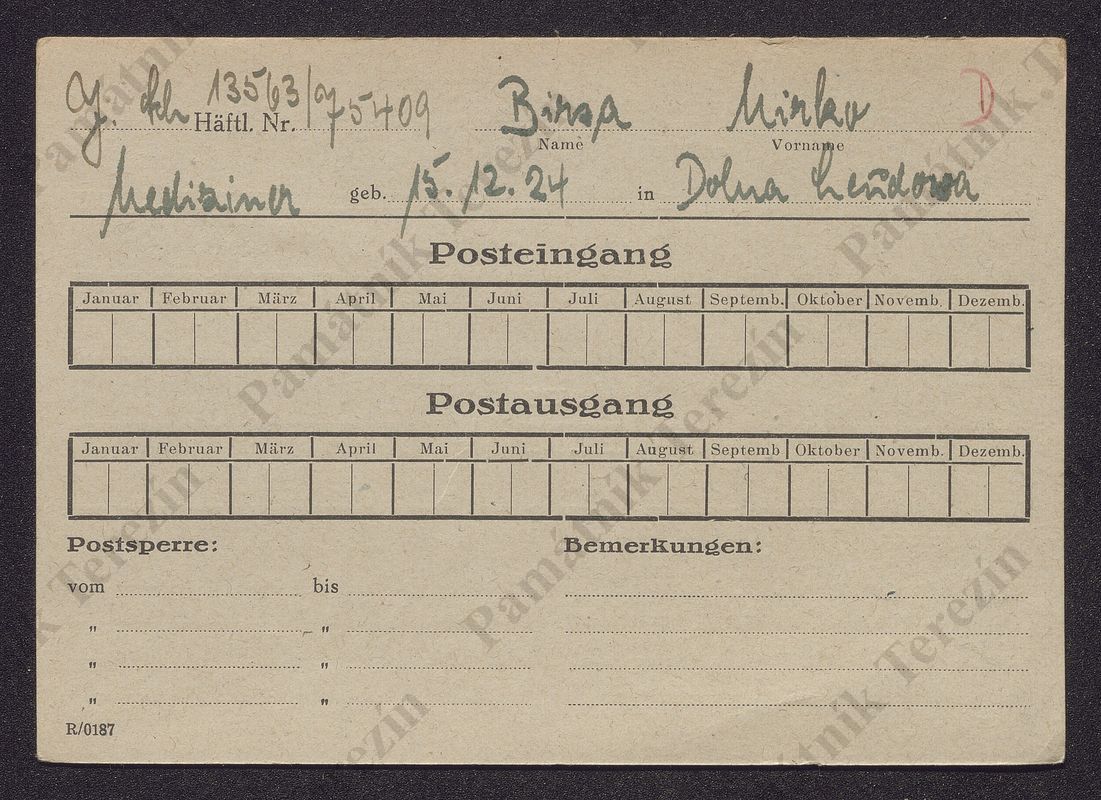 J. Häftl. Nr. 13563/75409 Birsa Mirko D
Name Vorname
Mediziner geb. 15. 12. 24 in Dolna
Posteingang
Januar Februar März April Mai Juni Juli August Septemb. Oktober Novemb. Dezemb.
Postausgang
Januar Februar März April Mai Juni Juli August Septemb Oktober Novemb. Dezemb.
Postsperre: Bemerkungen:
vom bis
" "
" "
" "
R/0187
Památník Terezín